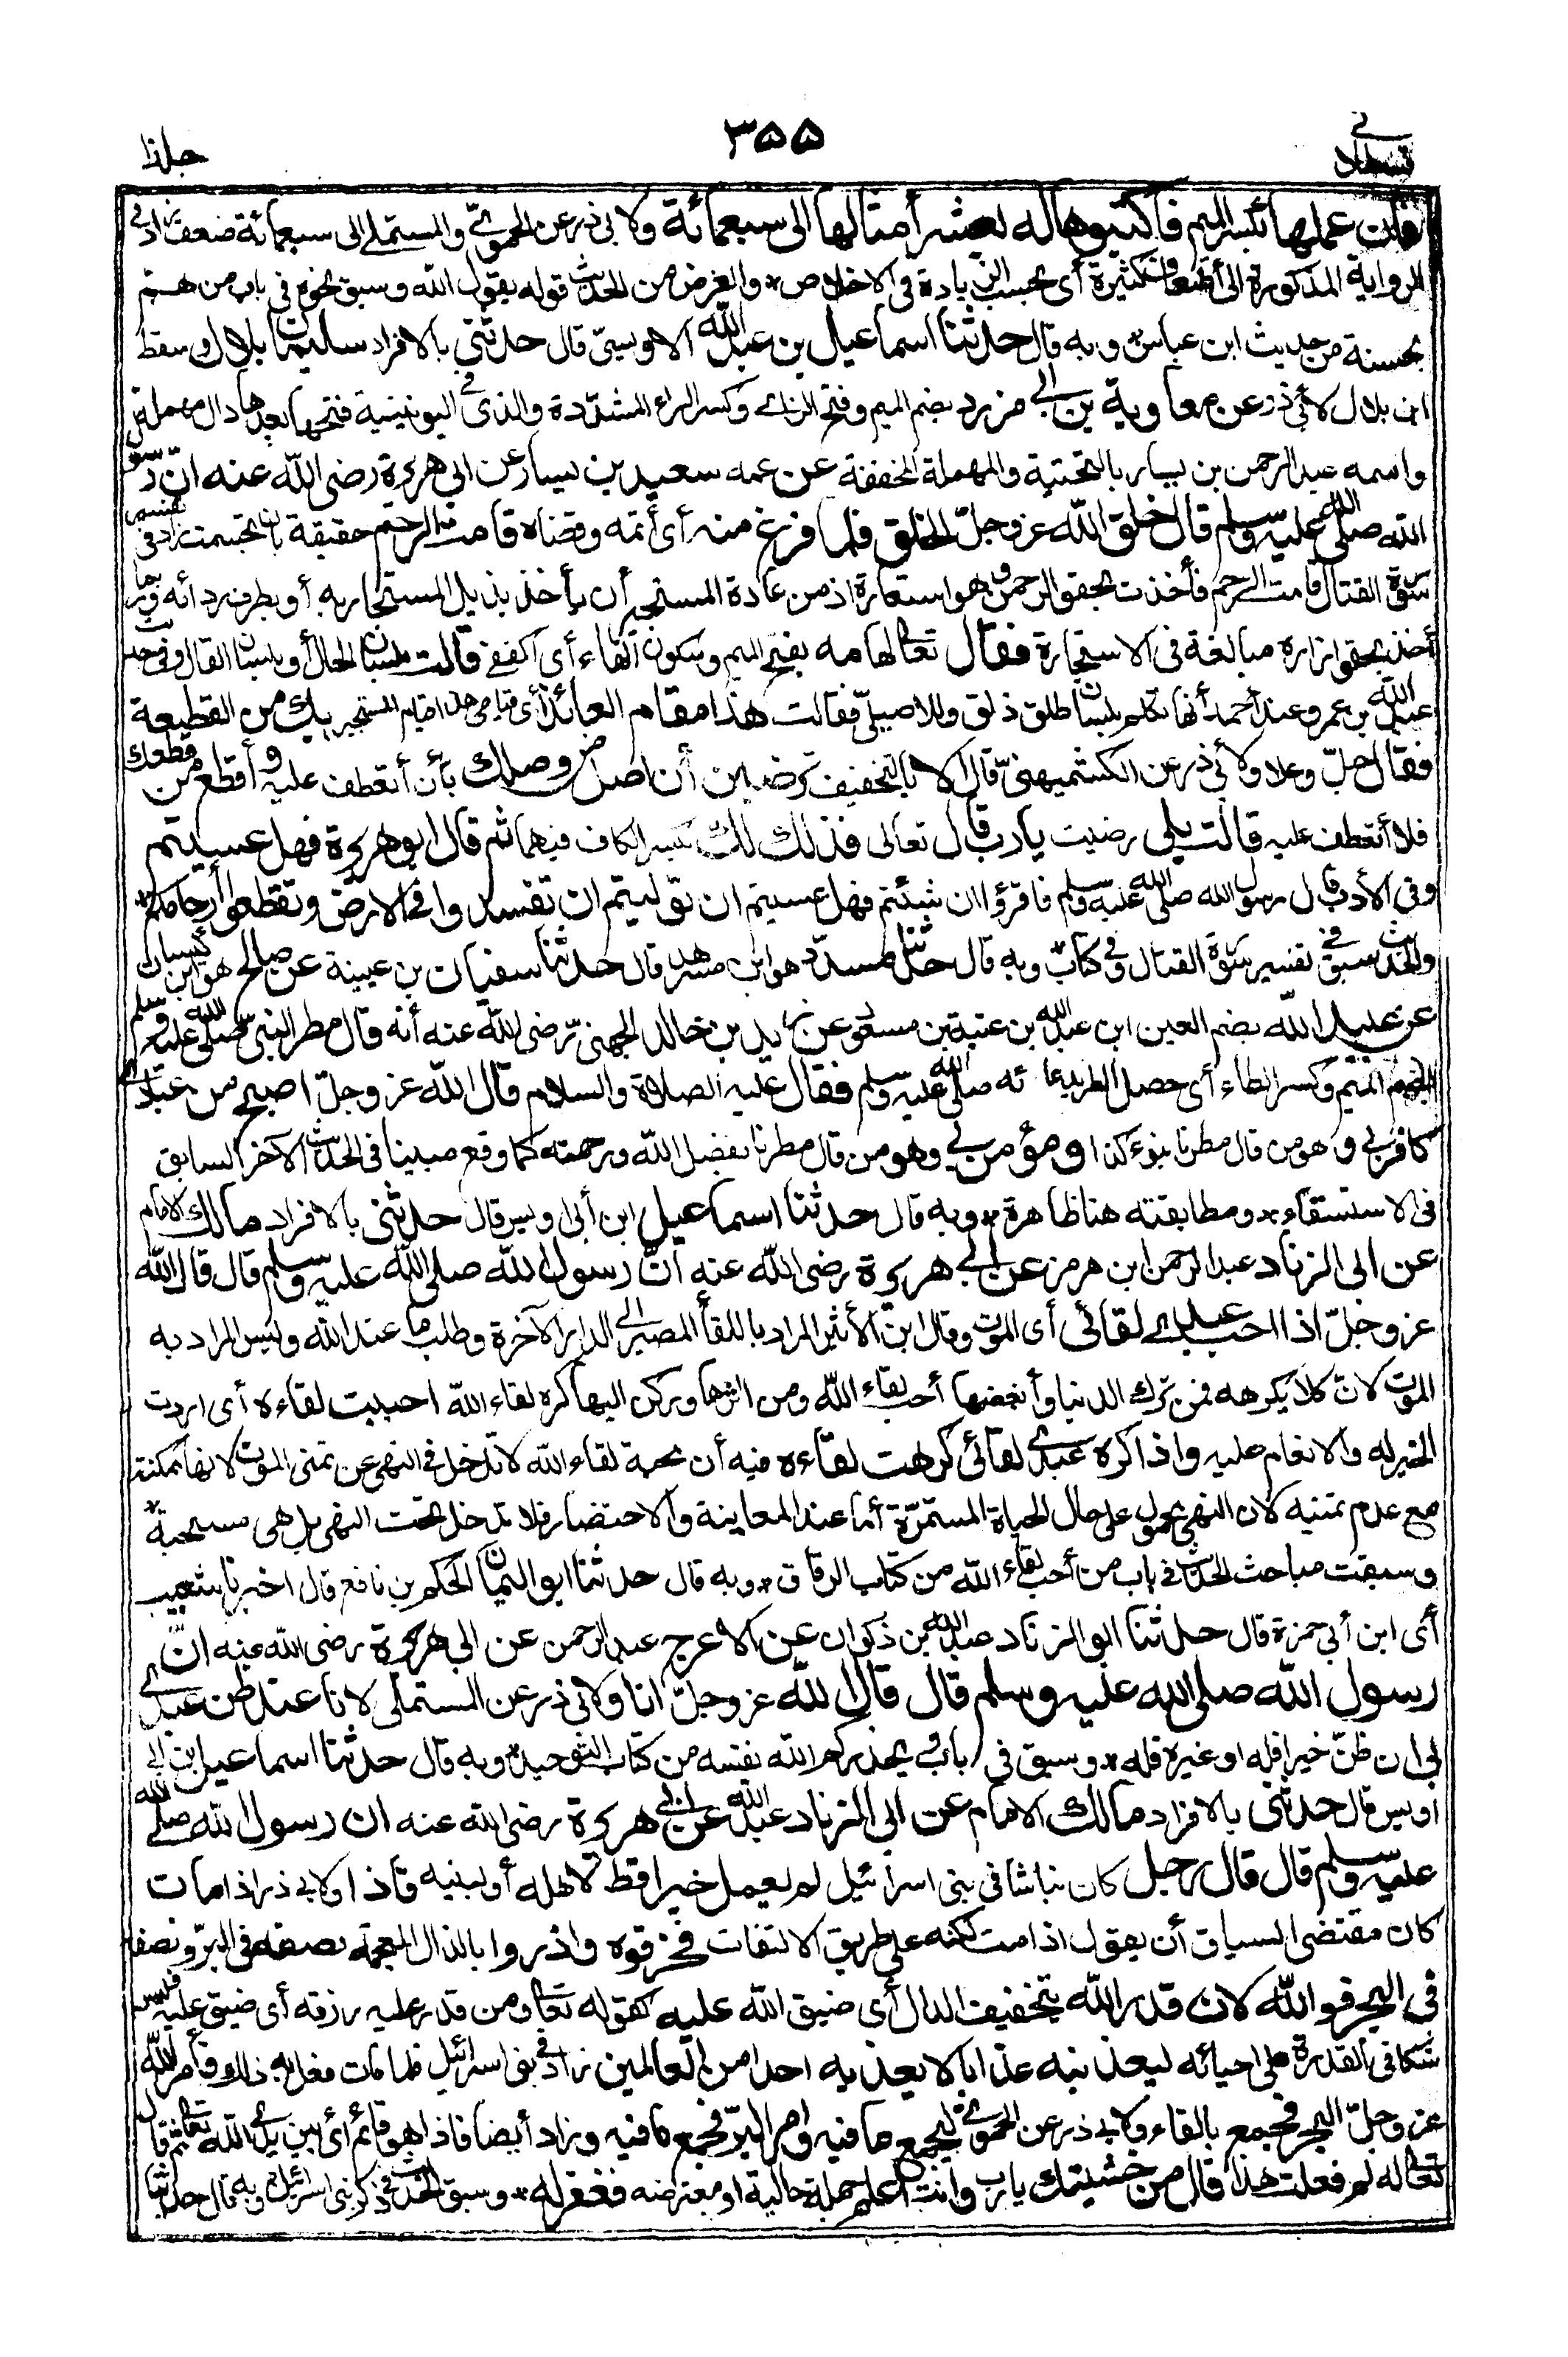 ٣٥٥
فان عملها بكسر الميم فاكتبوها له بعشر أمثالها الى سبعمائة ولابى ذر عن الحموى والمستملى الى سبعمائة ضعف زاد فى
الرواية المذكورة الى أضعاف كثيرة أى بحسب الزيادة فى الاخلاص * والغرض من الحديث قوله يقول الله وسبق نحوه فى باب من هم
بحسنة من حديث ابن عباس * وبه قال حدثنا اسماعيل بن عبد الله الاويسى قال حدثنى بالافراد سليمان بن بلال وسقط
ابن بلال لأبى ذر عن معاوية بن أبى مزرد بضم الميم وفتح الزاى وكسر الراء المشددة والذى فى اليونينية فتحها بعدها دال مهملة
واسمه عبد الرحمن بن يسار بالتحتية والمهملة المخففة عن عمه سعيد بن يسار عن ابى هريرة رضى الله عنه ان رسول
الله صلى الله عليه وسلم قال خلق الله عز وجل الخلق فلما فرغ منه أى أتمه وقضاه قامت الرحم حقيقة بان تجسمت زاد فى تفسير
سورة القتال قامت الرحم فأخذت بحقو الرحمن وهو استعارة اذ من عادة المستجير أن يأخذ بذيل المستجار به أو بطرف ردائه وربما
أخذ بحقو ازاره مبالغة فى الاستجارة فقال تعالى لها مه بفتح الميم وسكون الهاء أى اكففى قالت بلسان الحال أو بلسان القال وفى حديث
عبد الله بن عمرو عند أحمد أنها تكلم بلسان طلق ذلق وللاصيلى فقالت هذا مقام العائذ أى قيامى هذا قيام المستجير بك من القطيعة
فقال جل وعلا ولابى ذر عن الكشميهنى قال ألا بالتخفيف ترضين أن أصل من وصلك بأن أتعطف عليه وأقطع من قطعك
فلا أتعطف عليه قالت بلى رضيت يا رب قال تعالى فذلك لك بكسر الكاف فيهما ثم قال ابو هريرة فهل عسيتم
وفى الأدب قال رسول الله صلى الله عليه وسلم فاقرؤا ان شئتم فهل عسيتم ان توليتم ان تفسدوا فى الارض وتقطعوا أرحامكم *
والحديث سبق فى تفسير سورة القتال وفى كتاب وبه قال حدثنا مسدد هو ابن مسرهد قال حدثنا سفيان بن عيينة عن صالح هو ابن كيسان
عن عبيد الله بضم العين ابن عبد الله بن عتبة بن مسعود عن زيد بن خالد الجهنى رضى الله عنه أنه قال مطر النبى صلى الله عليه وسلم
بضم الميم وكسر الطاء أى حصل المطر بدعائه صلى الله عليه وسلم فقال عليه الصلاة والسلام قال الله عز وجل اصبح من عبادى
كافر بى وهو من قال مطرنا بنوء كذا ومؤمن بى وهو من قال مطرنا بفضل الله ورحمته كما وقع مبينا فى الحديث الآخر السابق
فى الاستسقاء * ومطابقته هنا ظاهرة * وبه قال حدثنا اسماعيل ابن أبى اويس قال حدثنى بالافراد مالك الامام
عن ابى الزناد عبد الرحمن ابن هرمز عن ابى هريرة رضى الله عنه ان رسول الله صلى الله عليه وسلم قال قال الله
عز وجل اذا احب عبدى لقائى أى الموت وقال ابن الأثير المراد باللقاء المصير الى الدار الآخرة وطلب ما عند الله وليس المراد به
الموت لان كلا يكرهه فمن ترك الدنيا وأبغضها أحب لقاء الله ومن آثرها وركن اليها كره لقاء الله احببت لقاءه أى اردت
الخير له والانعام عليه واذا كره عبدى لقائى كرهت لقاءه فيه أن محبة لقاء الله لا تدخل فى النهى عن تمنى الموت لانها ممكنة
مع عدم تمنيه لان النهى محمول على حال الحياة المستمرة أما عند المعاينة والاحتضار فلا تدخل تحت النهى بل هى مستحبة *
وسبقت مباحث الحديث فى باب من أحب لقاء الله من كتاب الرقاق * وبه قال حدثنا ابو اليمان الحكم بن نافع قال اخبرنا شعيب
أى ابن أبى حمزة قال حدثنا ابو الزناد عبد الله بن ذكوان عن الاعرج عبد الرحمن عن ابى هريرة رضى الله عنه انّ
رسول الله صلى الله عليه وسلم قال قال الله عز وجل انا ولابى ذر عن المستملى لانا عند ظن عبدى
بى ان ظن خيرا فله او غيره فله * وسبق فى باب ويحذركم الله نفسه من كتاب التوحيد * وبه قال حدثنا اسماعيل بن ابى
أويس قال حدثنى بالافراد مالك الامام عن ابى الزناد عبد الله عن ابى هريرة رضى الله عنه ان رسول الله صلى الله
عليه وسلم قال قال رجل كان نباشا فى بنى اسرائيل لم يعمل خيرا قط لاهله أو لبنيه فاذا ولابى ذر اذا مات
كان مقتضى السياق أن يقول اذا مت لكنه على طريق الالتفات فحرقوه واذروا بالذال المعجمة نصفه فى البر ونصفه
فى البحر فوالله لان قدر الله بتخفيف الدال أى ضيق الله عليه كقوله تعالى ومن قدر عليه رزقه أى ضيق عليه وليس
شكا فى القدرة على احيائه ليعذبنه عذابا لا يعذبه احدا من العالمين زاد فى بنى اسرائيل فلما مات فعل به ذلك فأمر الله
عز وجل البحر فجمع بالفاء ولابى ذر عن الحموى ليجمع ما فيه وامر البر فجمع ما فيه وزاد أيضا فاذا هو قائم أى بين يدى الله تعالى ثم قال
تعالى له لم فعلت هذا قال من خشيتك يا رب وانت أعلم جملة حالية او معترضه فغفر له * وسبق الحديث فى ذكر بنى اسرائيل * وبه قال حدثنا